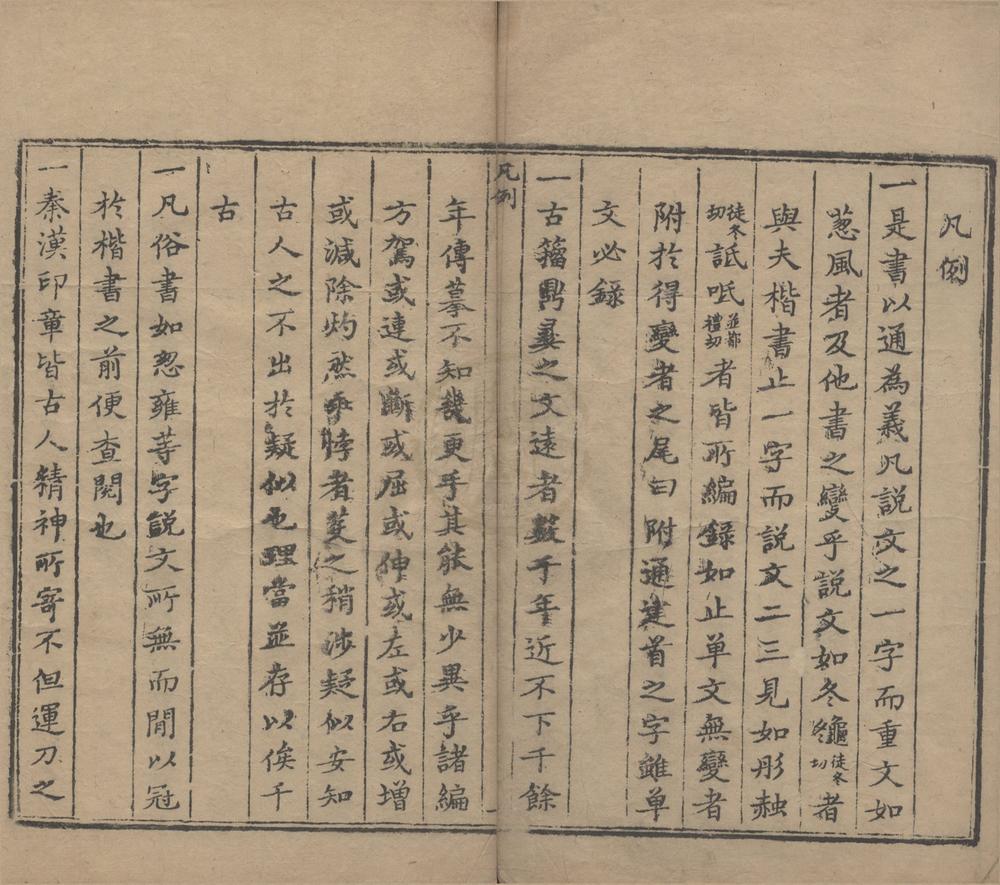 凡例
一是書以通為義凡説文之一字而重文如
蔥風者及他書之變乎説文如冬𪚰徒冬切者
與夫楷書止一字而説文二三見如彤赨
徒冬切詆呧並都禮切者皆所編錄如止单文無變者
附於得變者之尾曰附通建首之字雖单
文必録
一古籀鼎彝之文遠者數千年近不下千餘
凡例
年傳摹不知幾更乎其能無少異乎諸編
方駕或連或斷或屈或伸或左或右或增
或減除灼然乖悖者芟之稍涉疑似安知
古人之不出於疑似也理當並存以俟千
古
一凡俗書如怱雍䓁字説文所無而閒以冠
於楷書之前便查閲也
一秦漢印章皆古人精神所寄不但運刀之